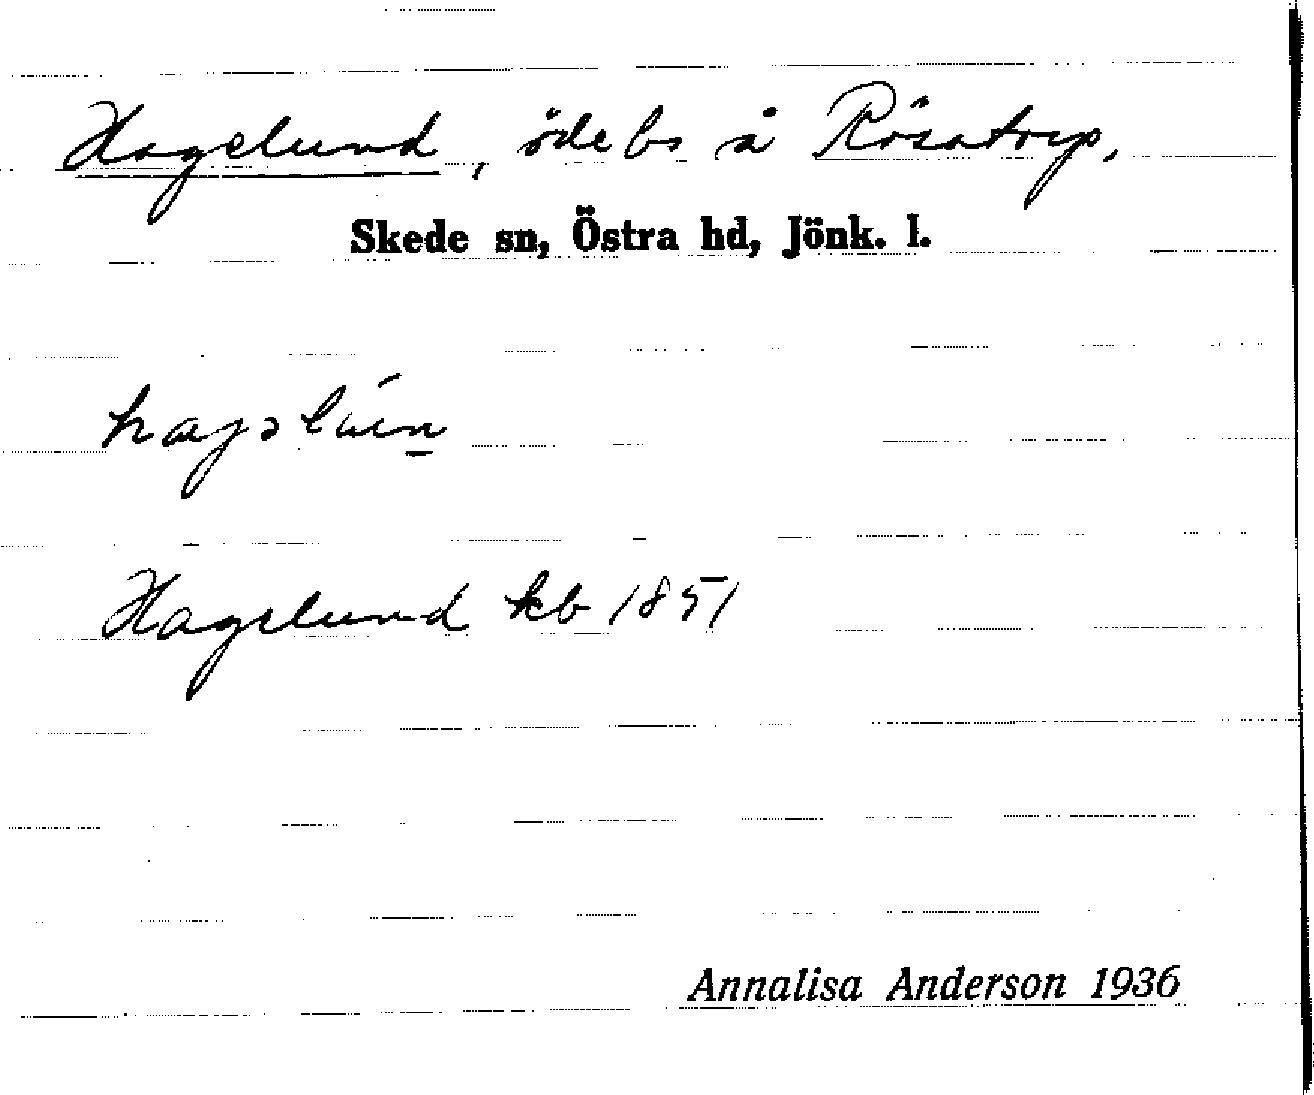 Hagelund, öde bs å Rösatorp.
Skede sn, Östra hd, Jönk. l.
Hagelund kb 1851
Annalisa Anderson 1936